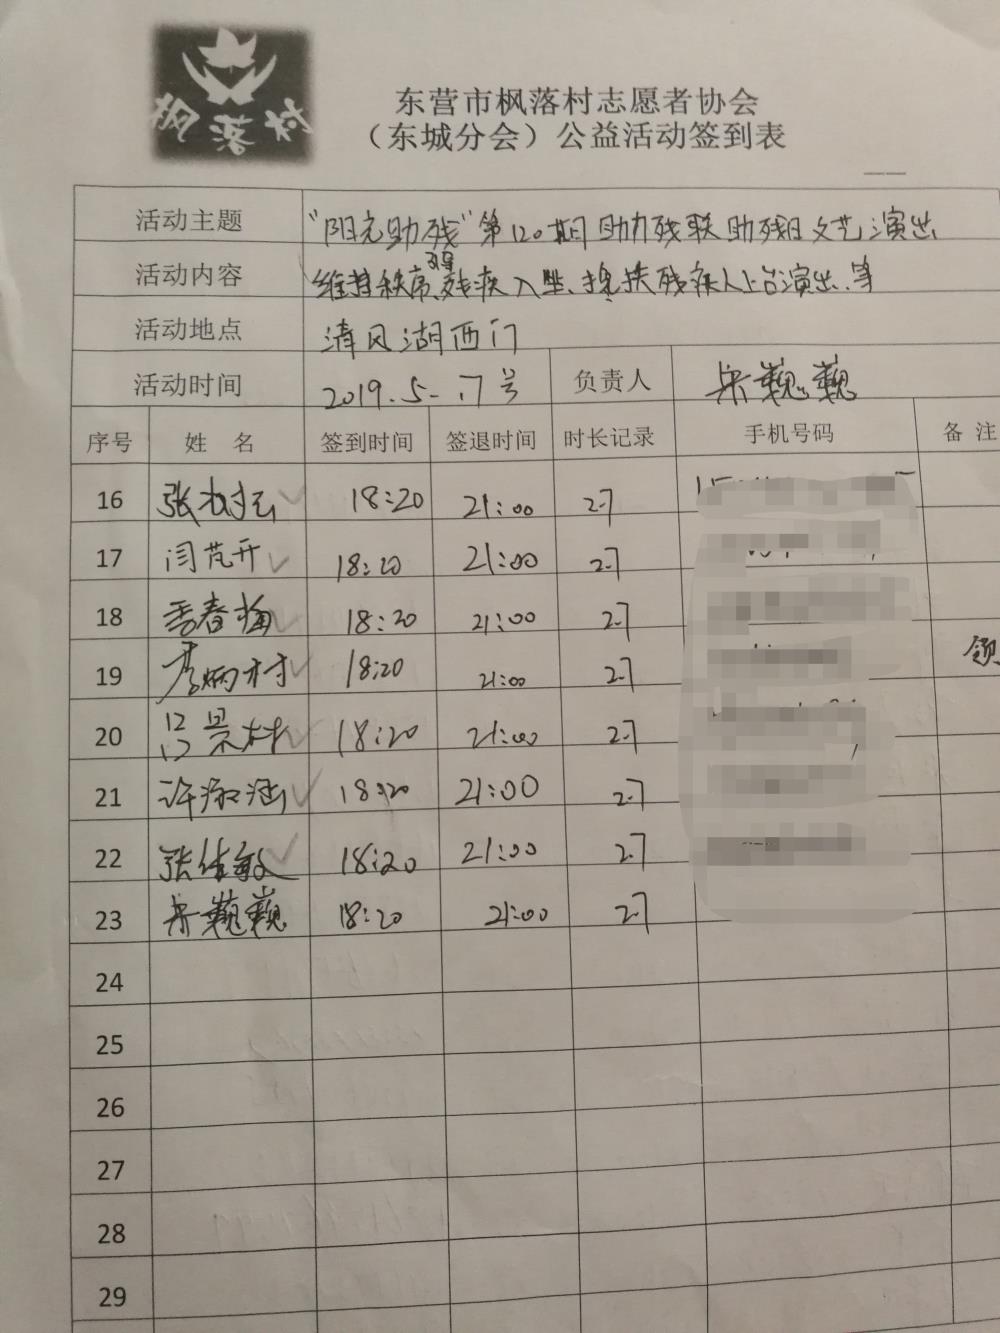 枫落村
东营市枫落村志愿者协会
（东城分会）公益活动签到表
活动主题 "阳光助残"第120期助力残联助残日文艺演出
活动内容 维持秩序、引导残疾入坐、搀扶残疾人上台演出、等
活动地点 清风湖西门
活动时间 2019.5.17号 负责人 宋巍巍
序号 姓 名 签到时间 签退时间 时长记录 手机号码 备 注
16 张 18:20 21:00 2.7
17 闫芃开 18:20 21:00 2.7
18 季春梅 18:20 21:00 2.7
19 李炳村 18:20 21:00 2.7 领
20 吕景林 18:20 21:00 2.7
21 许涵 18:20 21:00 2.7
22 张佳敏 18:20 21:00 2.7
23 宋巍巍 18:20 21:00 2.7
24
25
26
27
28
29